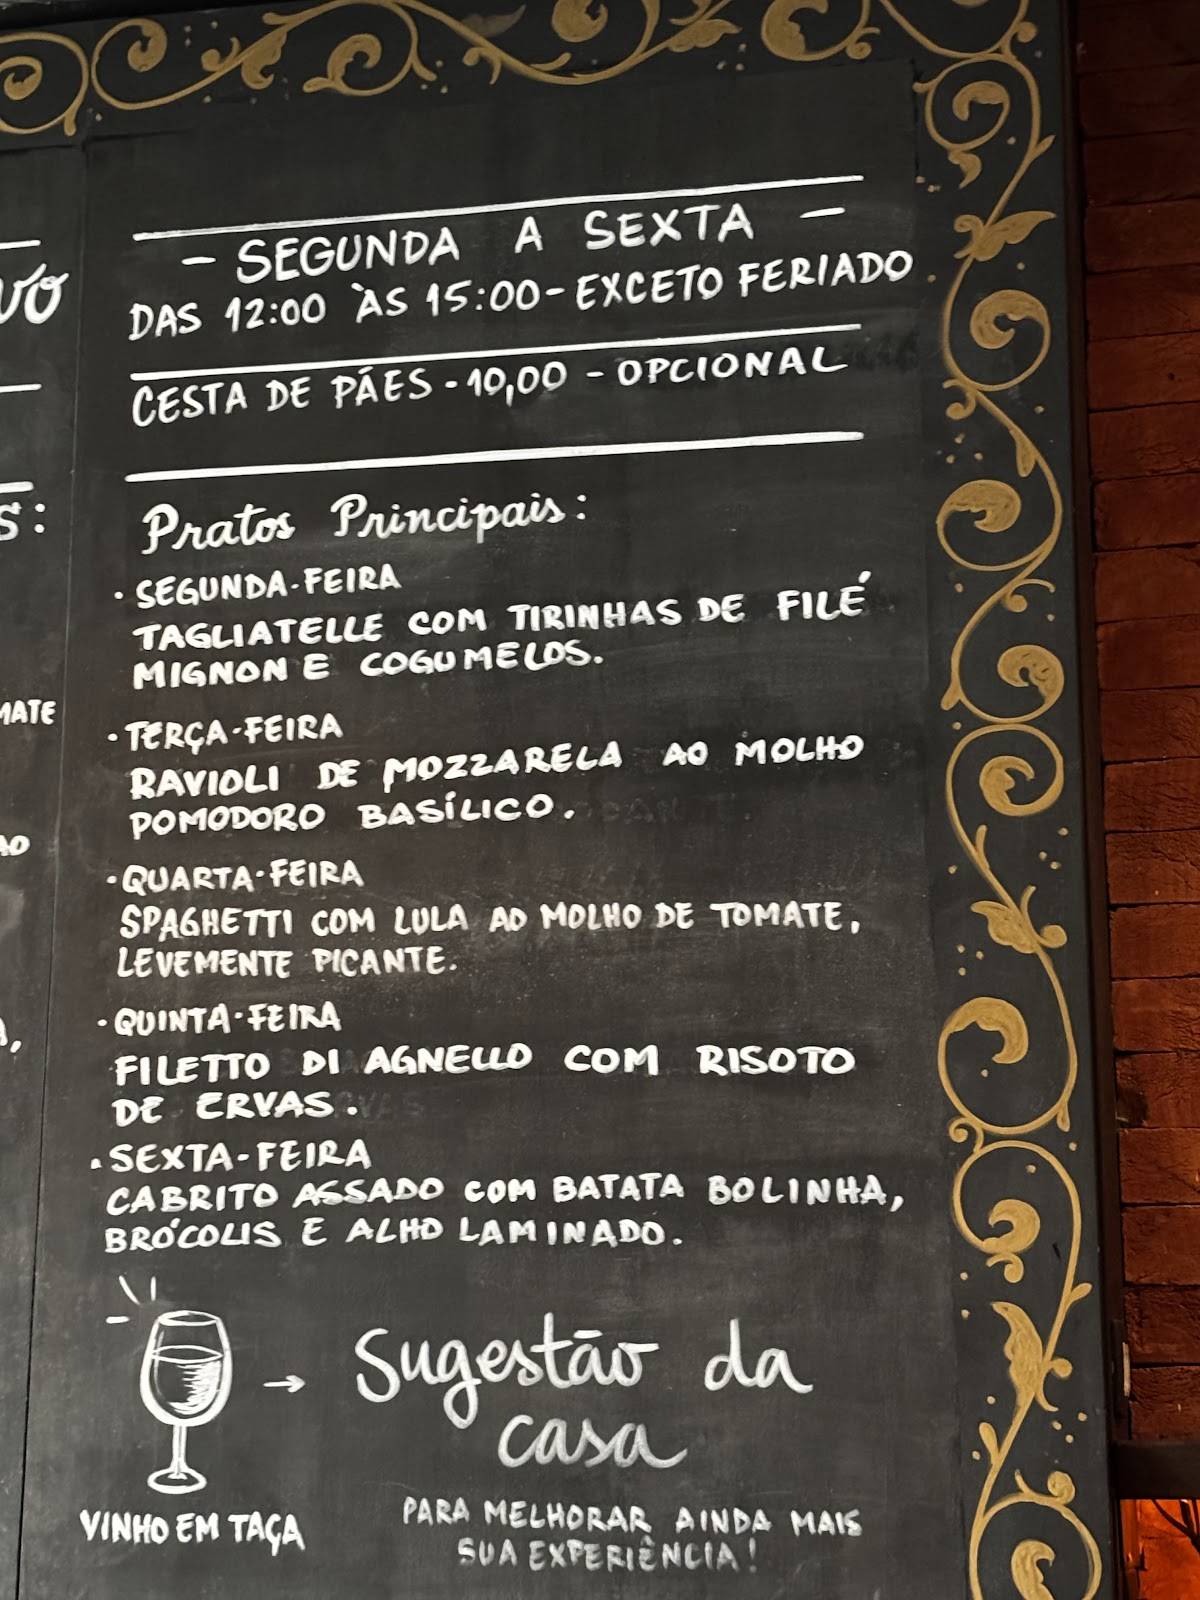 - SEGUNDA A SEXTA -
DAS 12:00 ÀS 15:00 - EXCETO FERIADO
CESTA DE PÃES - 10,00 - OPCIONAL
Pratos Principais:
· SEGUNDA-FEIRA
TAGLIATELLE COM TIRINHAS DE FILÉ
MIGNON E COGUMELOS.
· TERÇA-FEIRA
RAVIOLI DE MOZZARELA AO MOLHO
POMODORO BASÍLICO.
· QUARTA-FEIRA
SPAGHETTI COM LULA AO MOLHO DE TOMATE,
LEVEMENTE PICANTE.
· QUINTA-FEIRA
FILETTO DI AGNELLO COM RISOTO
DE ERVAS.
· SEXTA-FEIRA
CABRITO ASSADO COM BATATA BOLINHA,
BRÓCOLIS E ALHO LAMINADO.
→ Sugestão da
casa
VINHO EM TAÇA
PARA MELHORAR AINDA MAIS
SUA EXPERIÊNCIA!